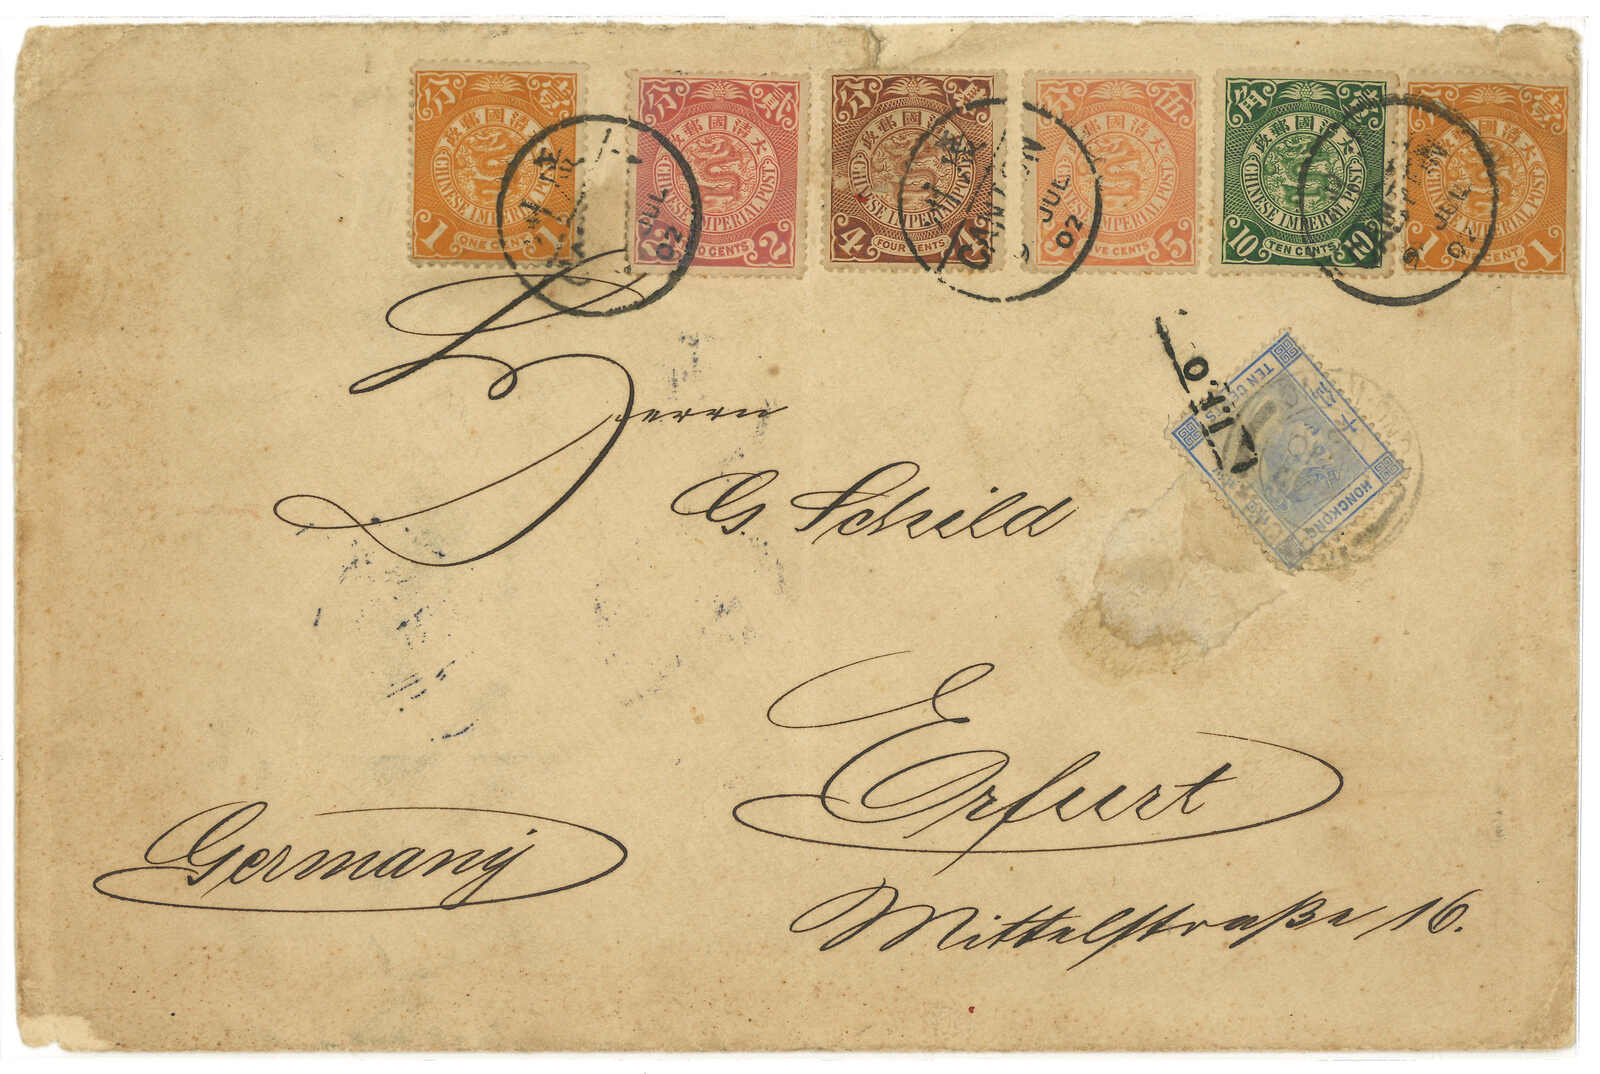 分 壹
大清國郵政
CHINESE IMPERIAL POST
1 ONE CENT 1
分 貳
大清國郵政
CHINESE IMPERIAL POST
2 CENTS 2
分
大清國郵政
CHINESE IMPERIAL POST
4 FOUR CENTS 4
分 伍
大清國郵政
IMPERIAL POST
CENTS 5
角 壹
大清國郵政
CHINESE IMPERIAL POST
10 TEN CENTS 10
分 壹
大清國郵政
IMPERIAL POST
1 CENT 1
JUL
02
CANTON
9 JUL
02
CANTON
9 JUL
02
I.P.O.
TEN CENTS
HONGKONG
Herrn
G. Schild
Erfurt
Germany
Mittelstraße 16.